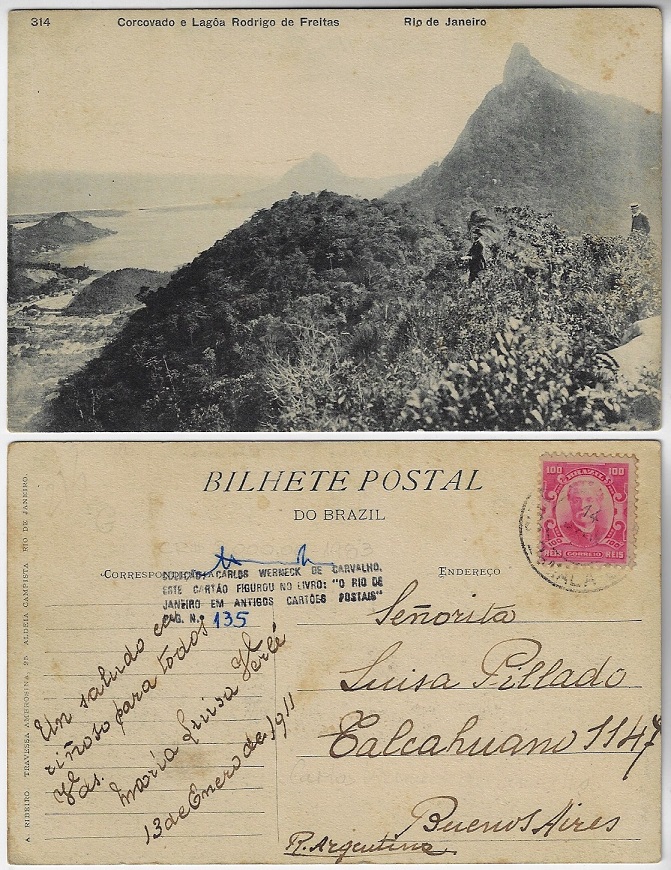 314 Corcovado e Lagôa Rodrigo de Freitas Rio de Janeiro
BILHETE POSTAL
DO BRAZIL
100 BRAZIL 100
14
REIS CORREIO REIS
CORRESPONDENCIA
ENDEREÇO
COLEÇÃO CARLOS WERNECK DE CARVALHO.
ESTE CARTÃO FIGUROU NO LIVRO: "O RIO DE
JANEIRO EM ANTIGOS CARTÕES POSTAIS"
PAG. N. 135
Un saludo ca
riñoso para todos
Vds.
María Luisa
13 de Enero de 1911
Señorita
Luisa Pillado
Talcahuano 1147
Buenos Aires
R. Argentina
A. RIBEIRO. TRAVESSA AMBROSINA, 25 ALDEIA CAMPISTA RIO DE JANEIRO.